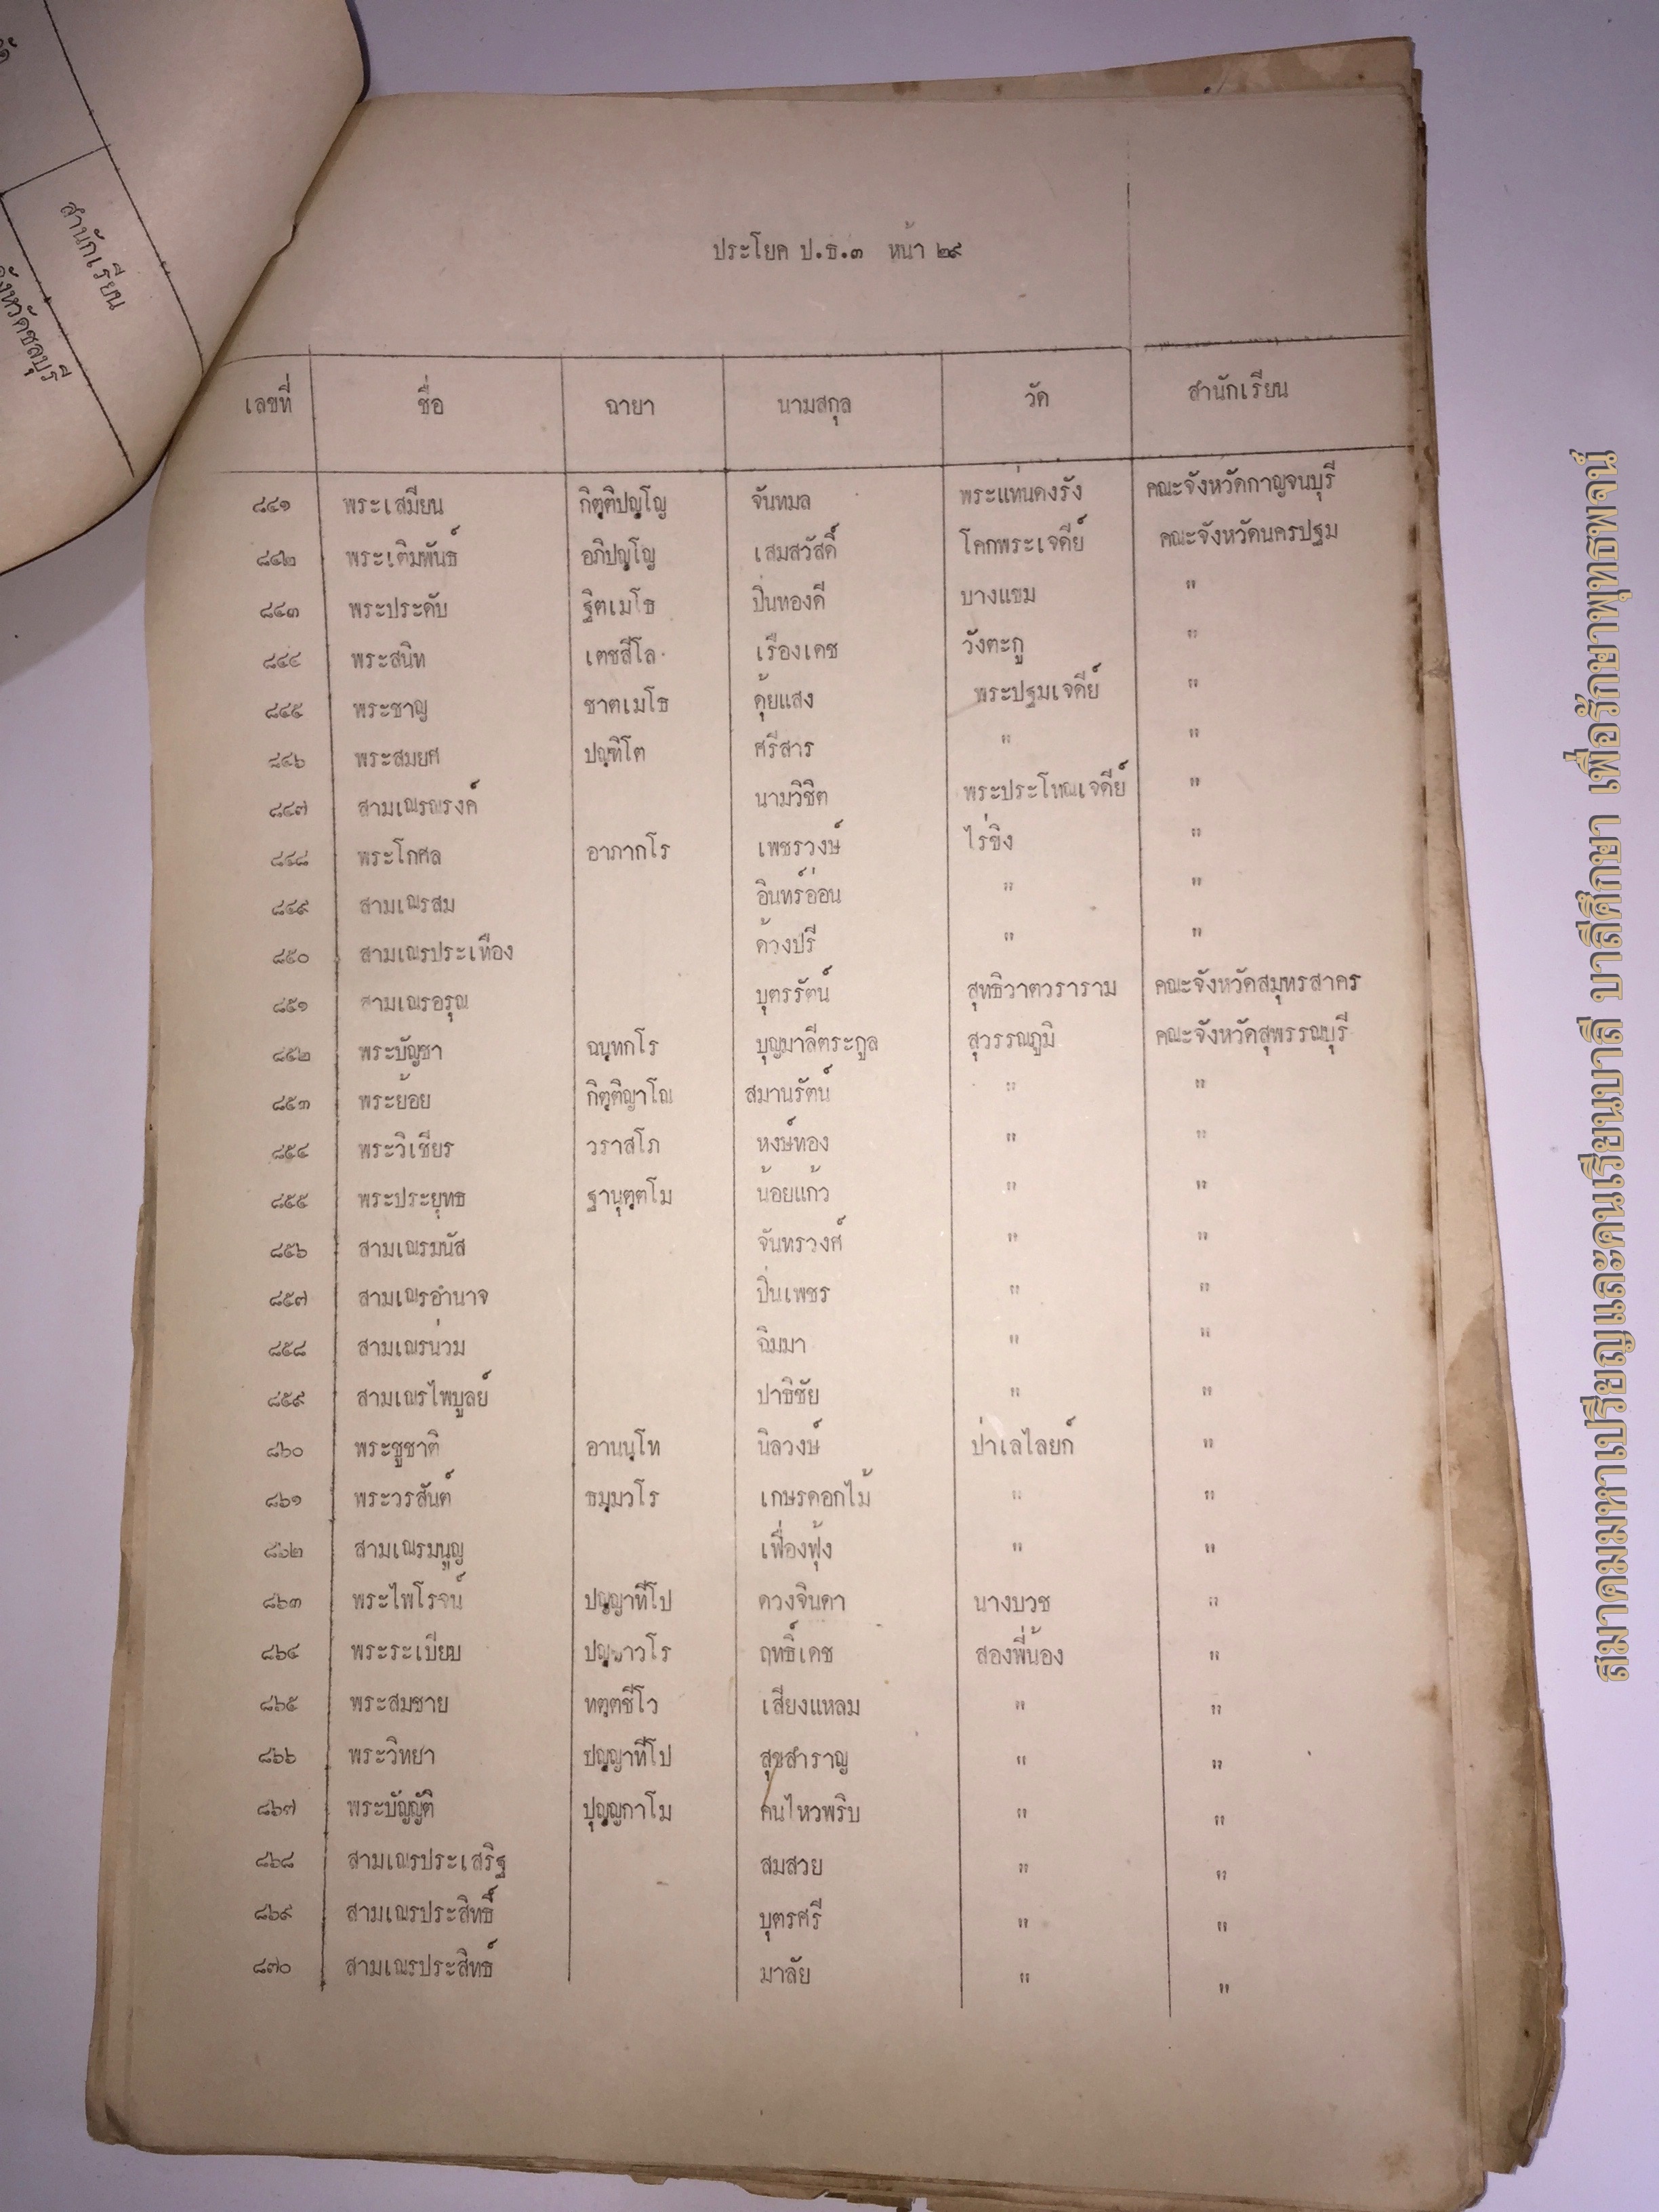 สำนักเรียน
จังหวัดชลบุรี
ประโยค ป.ธ.๓ หน้า ๒๙
เลขที่ ชื่อ ฉายา นามสกุล วัด สำนักเรียน
๘๔๑ พระเสมียน กิตฺติปญฺโญ จันทมล พระแท่นดงรัง คณะจังหวัดกาญจนบุรี
๘๔๒ พระเติมพันธ์ อภิปญฺโญ เสมสวัสดิ์ โคกพระเจดีย์ คณะจังหวัดนครปฐม
๘๔๓ พระประดับ ฐิตเมโธ ปิ่นทองดี บางแขม "
๘๔๔ พระสนิท เตชสีโล เรืองเดช วังตะกู "
๘๔๕ พระชาญ ชาตเมโธ ดุ้ยแสง พระปฐมเจดีย์ "
๘๔๖ พระสมยศ ปณฺฑิโต ศรีสาร " "
๘๔๗ สามเณรณรงค์ นามวิชิต พระประโทณเจดีย์ "
๘๔๘ พระโกศล อาภากโร เพชรวงษ์ ไร่ขิง "
๘๔๙ สามเณรสม อินทร์อ่อน " "
๘๕๐ สามเณรประเทือง ด้วงปรี " "
๘๕๑ สามเณรอรุณ บุตรรัตน์ สุทธิวาตวราราม คณะจังหวัดสมุทรสาคร
๘๕๒ พระบัญชา ฉนฺทกโร บุญมาลีตระกูล สุวรรณภูมิ คณะจังหวัดสุพรรณบุรี
๘๕๓ พระย้อย กิตฺติญาโณ สมานรัตน์ " "
๘๕๔ พระวิเชียร วราสโภ หงษ์ทอง " "
๘๕๕ พระประยุทธ ฐานุตฺตโม น้อยแก้ว " "
๘๕๖ สามเณรมนัส จันทรวงศ์ " "
๘๕๗ สามเณรอำนาจ ปิ่นเพชร " "
๘๕๘ สามเณรน่วม ฉิมมา " "
๘๕๙ สามเณรไพบูลย์ ปาธิชัย " "
๘๖๐ พระชูชาติ อานนฺโท นิลวงษ์ ป่าเลไลยก์ "
๘๖๑ พระวรสันต์ ธมฺมวโร เกษรดอกไม้ " "
๘๖๒ สามเณรมนูญ เฟื่องฟุ้ง " "
๘๖๓ พระไพโรจน์ ปญฺญาทีโป ดวงจินดา นางบวช "
๘๖๔ พระระเบียบ ปญฺญาวโร ฤทธิ์เดช สองพี่น้อง "
๘๖๕ พระสมชาย ทตฺตชีโว เสียงแหลม " "
๘๖๖ พระวิทยา ปญฺญาทีโป สุขสำราญ " "
๘๖๗ พระบัญญัติ ปุญฺญกาโม คนไหวพริบ " "
๘๖๘ สามเณรประเสริฐ สมสวย " "
๘๖๙ สามเณรประสิทธิ์ บุตรศรี " "
๘๗๐ สามเณรประสิทธ์ มาลัย " "
สมาคมมหาเปรียญและคนเรียนบาลี บาลีศึกษา เพื่อรักษาพุทธพจน์